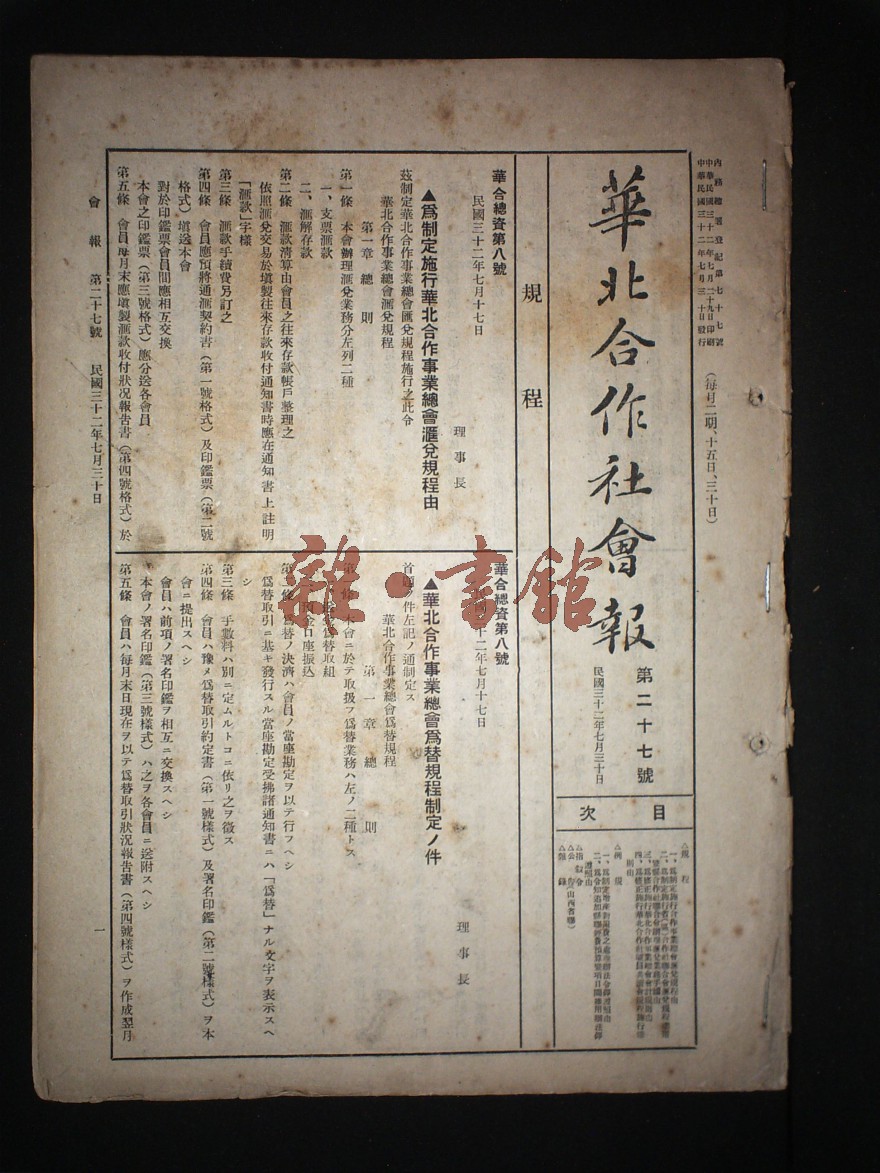 內務總署登記第七十七號
中華民國三十二年七月二十九日印刷
中華民國三十二年七月三十日發行
(每月二期、十五日、三十日)
華北合作社會報
第二十七號
民國三十二年七月三十日
目次
規程
華合總資第八號
民國三十二年七月十七日
理事長
▲爲制定施行華北合作事業總會滙兌規程由
茲制定華北合作事業總會匯兌規程施行之此令
華北合作事業總會滙兌規程
第一章 總則
第一條 本會辦理滙兌業務分左列二種
一、支票滙款
二、滙解存款
第二條 滙款清算由會員之往來存款帳戶整理之
依照滙兌交易於塡製往來存款收付通知書時應在通知書上註明
「滙款」字樣
第三條 滙款手續費另訂之
第四條 會員應預將通滙契約書(第一號格式)及印鑑票(第二號
格式)塡送本會
對於印鑑票會員間應相互交換
本會之印鑑票(第三號格式)應分送各會員
第五條 會員每月末應塡製滙款收付狀況報告書(第四號格式)於
華合總資第八號
民國三十二年七月十七日
理事長
▲華北合作事業總會爲替規程制定ノ件
首題ノ件左記ノ通制定ス
華北合作事業總會爲替規程
第一章 總則
第一條 本會ニ於テ取扱フ爲替業務ハ左ノ二種トス
爲替取組
預金口座振込
第二條 爲替ノ決濟ハ會員ノ當座勘定ヲ以テ行フヘシ
爲替取引ニ基キ發行スル當座勘定受拂諸通知書ニハ「爲替」ナル文字ヲ表示スヘ
シ
第三條 手數料ハ別ニ定ムルトコニ依リ之ヲ徵ス
第四條 會員ハ豫メ爲替取引約定書(第一號樣式)及署名印鑑(第二號樣式)ヲ本
會ニ提出スヘシ
會員ハ前項ノ署名印鑑ヲ相互ニ交換スヘシ
本會ノ署名印鑑(第三號樣式)ハ之ヲ各會員ニ送附スヘシ
第五條 會員ハ每月末日現在ヲ以テ爲替取引狀況報告書(第四號樣式)ヲ作成翌月
會報 第二十七號 民國三十二年七月三十日
一
雜·書館